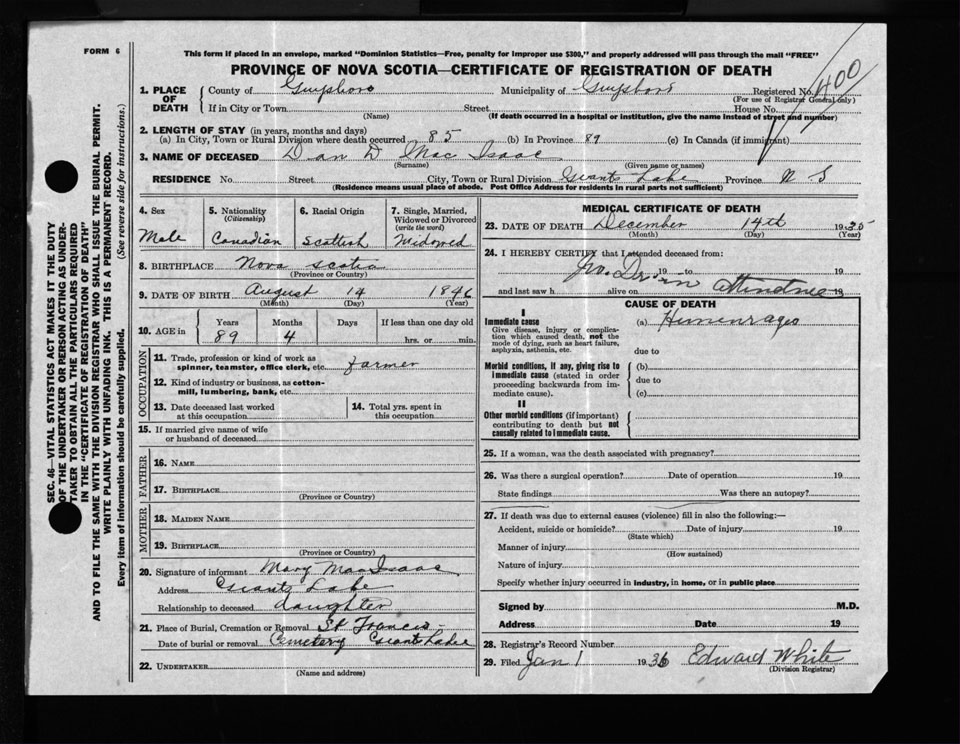 FORM 6
This form if placed in an envelope, marked "Dominion Statistics—Free, penalty for improper use $300," and properly addressed will pass through the mail "FREE"
PROVINCE OF NOVA SCOTIA—CERTIFICATE OF REGISTRATION OF DEATH
1. PLACE OF DEATH County of Guysboro Municipality of Guysboro Registered No. 400
(For use of Registrar General only)
If in City or Town Street House No.
(Name) (If death occurred in a hospital or institution, give the name instead of street and number)
2. LENGTH OF STAY (in years, months and days)
(a) In City, Town or Rural Division where death occurred 85 (b) In Province 89 (c) In Canada (if immigrant)
3. NAME OF DECEASED Dan D Mac Isaac
(Surname) (Given name or names)
RESIDENCE No. Street City, Town or Rural Division Giants Lake Province N-S
(Residence means usual place of abode. Post Office Address for residents in rural parts not sufficient)
4. Sex Male
5. Nationality (Citizenship) Canadian
6. Racial Origin Scottish
7. Single, Married, Widowed or Divorced (write the word) Widowed
8. BIRTHPLACE Nova Scotia
(Province or Country)
9. DATE OF BIRTH August 14 1846
(Month) (Day) (Year)
10. AGE in Years 89 Months 4 Days If less than one day old hrs. or min.
OCCUPATION
11. Trade, profession or kind of work as spinner, teamster, office clerk, etc. Farmer
12. Kind of industry or business, as cotton-mill, lumbering, bank, etc.
13. Date deceased last worked at this occupation
14. Total yrs. spent in this occupation
15. If married give name of wife or husband of deceased
FATHER
16. NAME
17. BIRTHPLACE
(Province or Country)
MOTHER
18. MAIDEN NAME
19. BIRTHPLACE
(Province or Country)
20. Signature of informant Mary MacIsaac
Address Giants Lake
Relationship to deceased daughter
21. Place of Burial, Cremation or Removal St Francis
Date of burial or removal Cemetery Giants Lake
22. UNDERTAKER
(Name and address)
MEDICAL CERTIFICATE OF DEATH
23. DATE OF DEATH December 14th 1935
(Month) (Day) (Year)
24. I HEREBY CERTIFY that I attended deceased from:
No. Dr. in 19 to 19
and last saw h alive on attendance 19
CAUSE OF DEATH
I
Immediate cause
Give disease, injury or complication which caused death, not the mode of dying, such as heart failure, asphyxia, asthenia, etc.
(a)
due to
Morbid conditions, if any, giving rise to immediate cause (stated in order proceeding backwards from immediate cause).
(b)
due to
(c)
II
Other morbid conditions (if important) contributing to death but not causally related to immediate cause.
25. If a woman, was the death associated with pregnancy?
26. Was there a surgical operation? Date of operation 19
State findings Was there an autopsy?
27. If death was due to external causes (violence) fill in also the following:—
Accident, suicide or homicide? Date of injury 19
(State which)
Manner of injury
(How sustained)
Nature of injury
Specify whether injury occurred in industry, in home, or in public place
Signed by M.D.
Address Date 19
28. Registrar's Record Number
29. Filed Jan 1 1936 Edward White
(Division Registrar)
SEC. 46—VITAL STATISTICS ACT MAKES IT THE DUTY
OF THE UNDERTAKER OR PERSON ACTING AS UNDER-
TAKER TO OBTAIN ALL THE PARTICULARS REQUIRED
IN THE "CERTIFICATE OF REGISTRATION OF DEATH"
AND TO FILE THE SAME WITH THE DIVISION REGISTRAR WHO SHALL ISSUE THE BURIAL PERMIT.
WRITE PLAINLY WITH UNFADING INK. THIS IS A PERMANENT RECORD.
Every item of information should be carefully supplied. (See reverse side for instructions.)